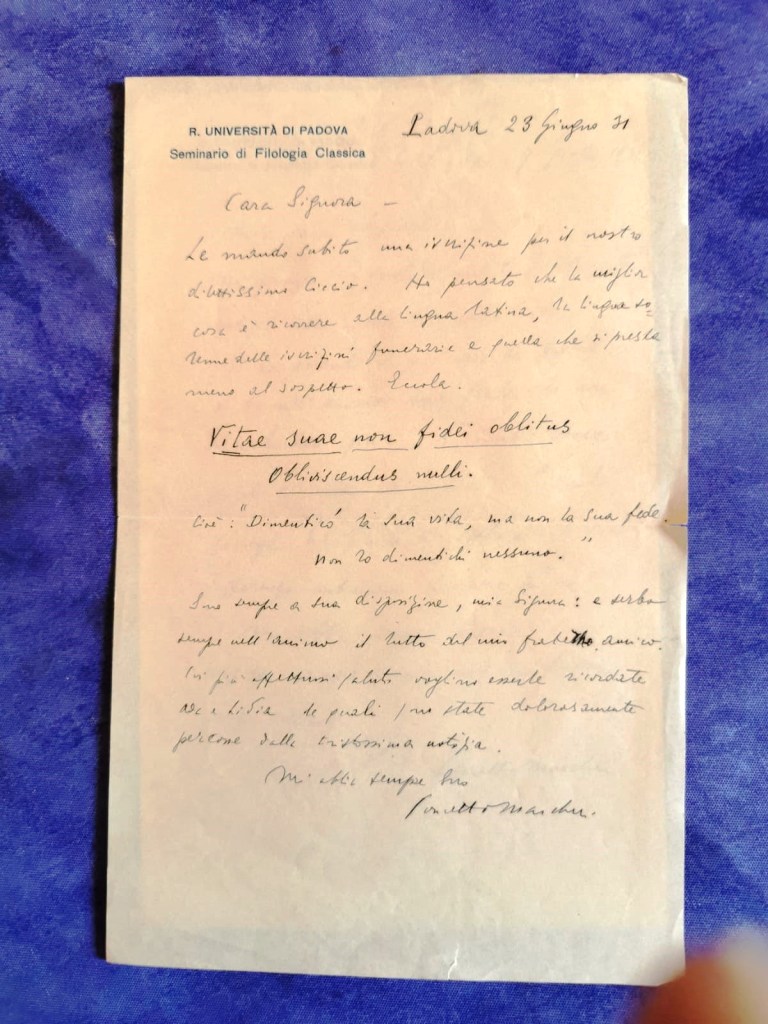 R. UNIVERSITÀ DI PADOVA
Seminario di Filologia Classica
Padova 23 Giugno 31
Cara Signora –
Le mando subito una iscrizione per il nostro
dilettissimo Ciccio. Ho pensato che la miglior
cosa è ricorrere alla lingua latina, la lingua so-
lenne delle iscrizioni funerarie e quella che si presta
meno al sospetto. Eccola.
Vitae suae non fidei oblitus
Obliviscendus nulli.
Cioè: "Dimenticò la sua vita, ma non la sua fede.
Non lo dimentichi nessuno."
Sono sempre a sua disposizione, mia Signora: e serbo
sempre nell'animo il lutto del mio fratello amico.
I più affettuosi saluti vogliono esserle ricordate
e Lidia le quali sono state dolorosamente
percosse dalla tristissima notizia.
Mi abbia sempre Suo
Concetto Marchesi.